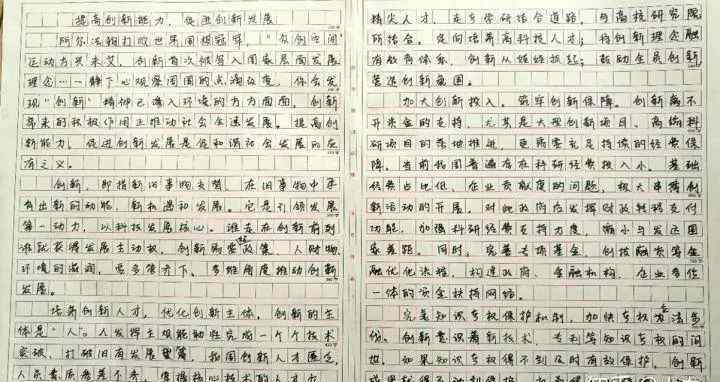 提高创新能力，促进创新发展
阿尔法狗打败世界围棋冠军，“众创空间”
运动方兴未艾，创新首次被写入国家层面发展
理念……静下心观察周围的点滴改变，你会发
现“创新”精神已融入环境的方方面面，创新
带来的积极作用正推动社会全速发展。提高创
新能力，促进创新发展是促和谐社会发展的应
有之义。
创新，即指新旧事物交替，在旧事物中孕
育出新的动能，新机遇和发展。它是引领发展
第一动力，以科技发展核心。谁走在创新前列
谁就获得发展主动权，创新需要政策、人财物、
环境的滋润，需多管齐下、多维角度推动创新
发展。
培养创新人才，优化创新主体。创新的主
体是“人”。人发挥主观能动性完成一个个技术
突破，打破旧有发展 我国创新人才匮乏，
人员素质参差不齐，
精尖人才，走产学研结合道路，与高校研究院
所结合，定向培养高科技人才；将创新理念融
入教育体系，创新从娃娃抓起；鼓励全员创新
营造创新氛围。
加大创新投入，筑牢创新保障。创新离不
开资金的支持，尤其是大型创新项目、高端科
研项目的落地推进，更需要充足持续的经费保
障。当前我国普遍存在科研经费投入小、基础
经费占比低、企业贡献度的问题，极大掣肘创
新活动的开展，对此政府应发挥财政转移支付
功能，加强科研经费支持力度，缩小与发达国
家差距。同时，完善专项基金，创投融资等金
融优化法雄，构建政府、金融机构、企业多位
一体的资金扶持网络。
完善知识产权保护机制，加快产权立法身
份。创新意识着新技术、专利等知识产权的问
世，如果知识产权得不到及时有效保护，创新